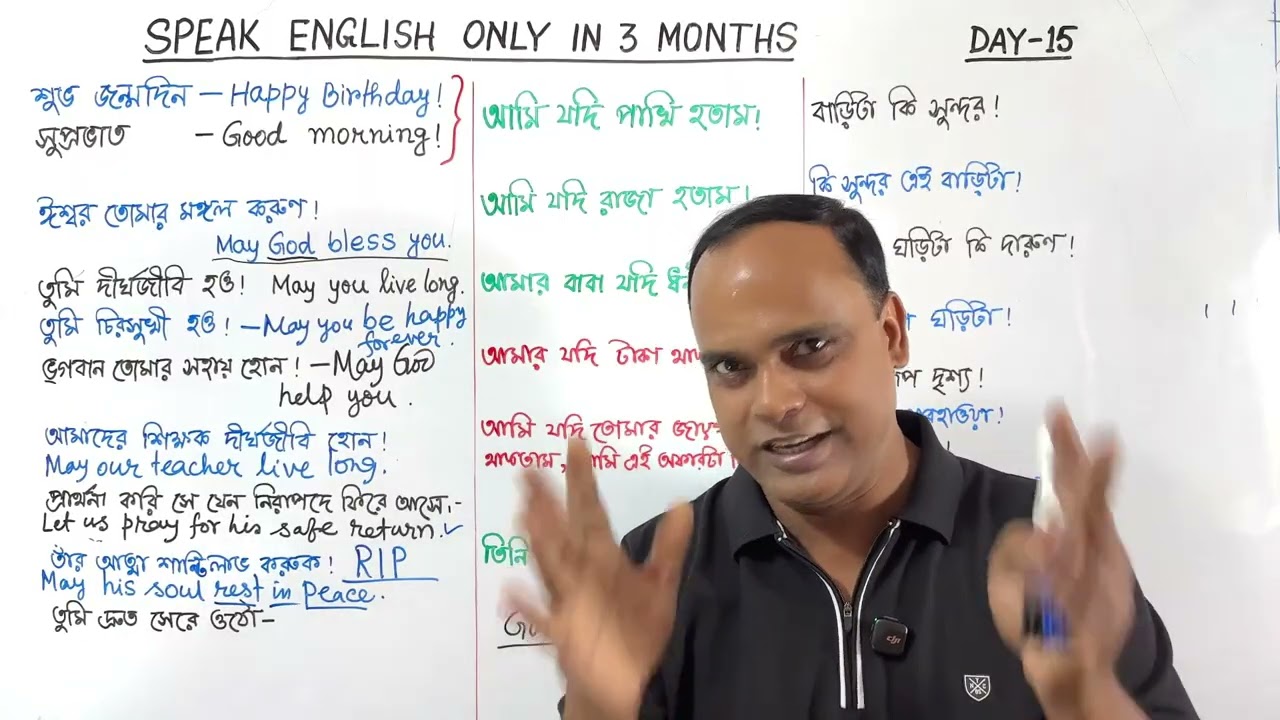 SPEAK ENGLISH ONLY IN 3 MONTHS
DAY-15
শুভ জন্মদিন – Happy Birthday!
সুপ্রভাত – Good morning!
ঈশ্বর তোমার মঙ্গল করুণ!
May God bless you.
তুমি দীর্ঘজীবি হও! May you live long.
তুমি চিরসুখী হও! – May you be happy
forever.
ভগবান তোমার সহায় হোন! – May God
help you.
আমাদের শিক্ষক দীর্ঘজীবি হোন!
May our teacher live long.
প্রার্থনা করি সে যেন নিরাপদে ফিরে আসে.-
Let us pray for his safe return. ✓
তাঁর আত্মা শান্তিলাভ করুক! RIP
May his soul rest in Peace.
তুমি দ্রুত সেরে ওঠো –
আমি যদি পাখি হতাম!
আমি যদি রাজা হতাম!
আমার বাবা যদি
আমার যদি টাকা
আমি যদি তোমার
থাকতাম, আমি এই অফারটা
তিনি
বাড়িটা কি সুন্দর!
কি সুন্দর এই বাড়িটা!
ঘড়িটা কি দারুণ!
ঘড়িটা!
দৃশ্য!